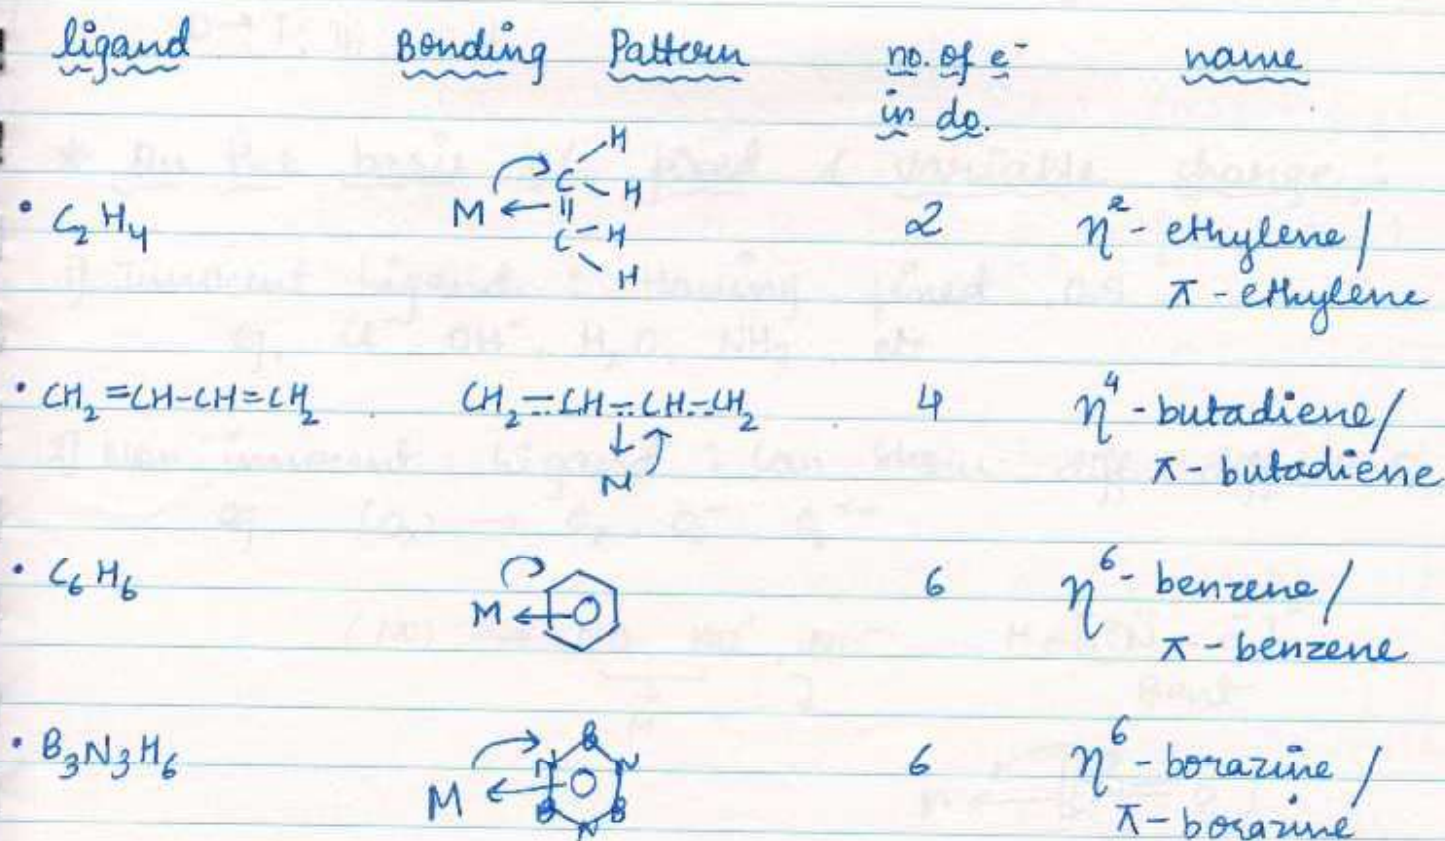 ligand Bonding Pattern no. of e⁻ name
in do.
• C₂H₄ M ← C = C H H H H 2 η²- ethylene /
π - ethylene
• CH₂=CH-CH=CH₂ CH₂=CH=CH=CH₂ 4 η⁴-butadiene/
M π - butadiene
• C₆H₆ M ← 6 η⁶- benzene /
π - benzene
• B₃N₃H₆ M ← B N B N B N 6 η⁶-borazine /
π-borazine